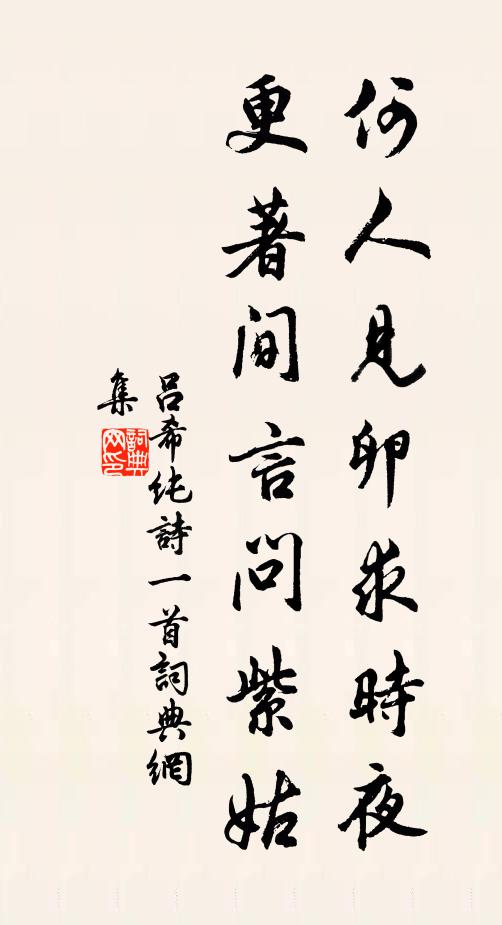 何人見卵求時夜
更著閒言問紫姑
呂希純詩一首詞典網
集
詞典網印